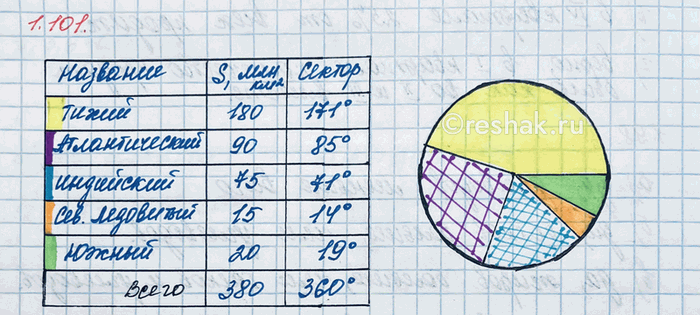 1.101.
Название S, млн км² Сектор
Тихий 180 171°
Атлантический 90 85°
Индийский 75 71°
Сев. Ледовитый 15 14°
Южный 20 19°
Всего 380 360°
©reshak.ru